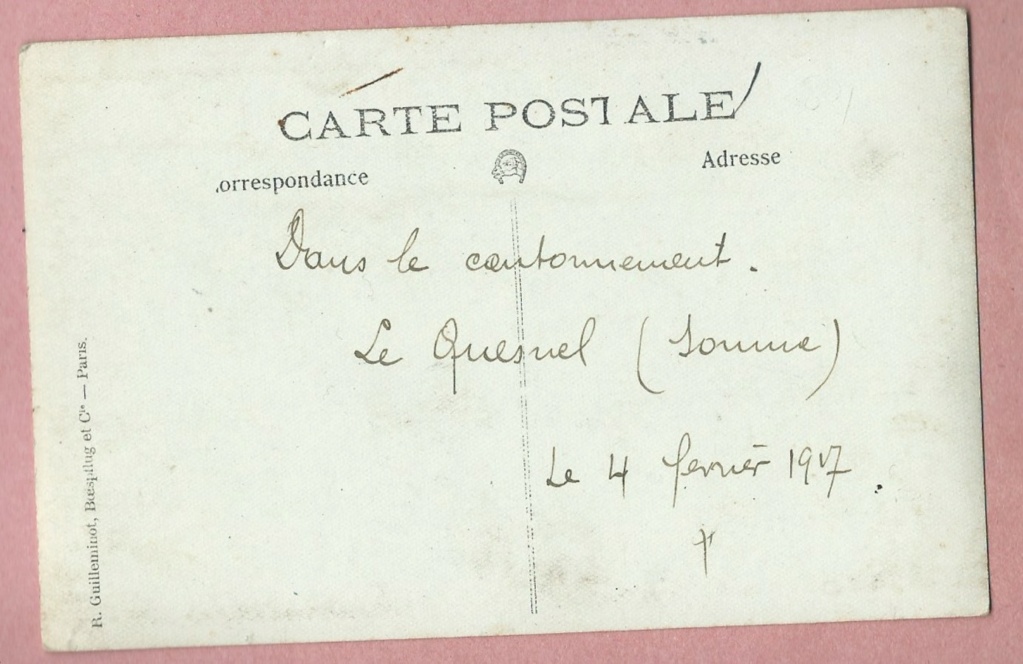 CARTE POSTALE
Correspondance
Adresse
Dans le cantonnement.
Le Quesnel (Somme)
Le 4 février 1917.
R. Guilleminot, Bœspflug et Cie — Paris.